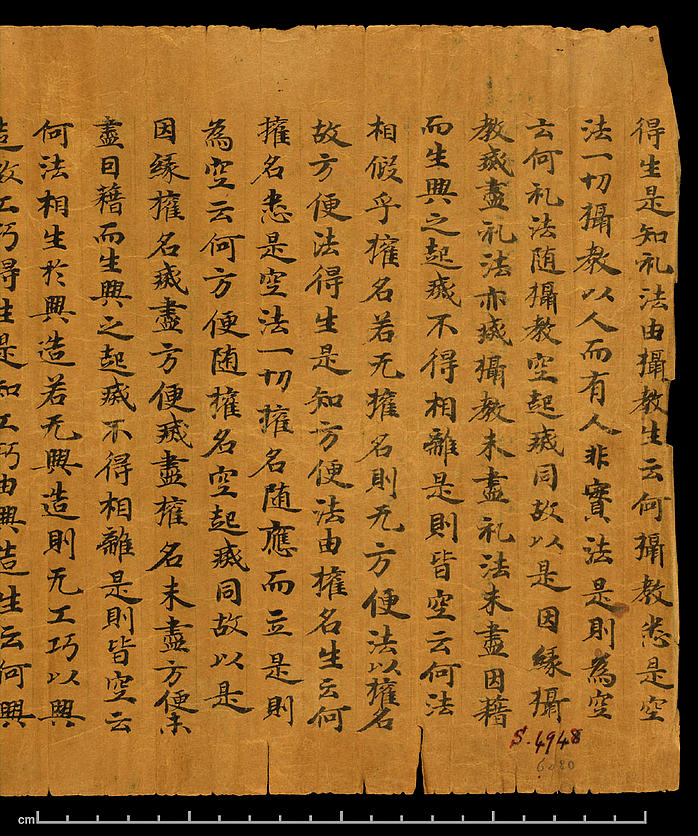 得生是知礼法由攝教生云何攝教悉是空
法一切攝教以人而有人非實法是則為空
云何礼法随攝教空起滅同故以是因緣攝
教滅盡礼法亦滅攝教未盡礼法未盡因藉
而生興之起滅不得相離是則皆空云何法
相假乎攉名若无攉名則无方便法以攉名
故方便法得生是知方便法由攉名生云何
攉名悉是空法一切攉名随應而立是則
為空云何方便随攉名空起滅同故以是
因緣攉名滅盡方便滅盡攉名未盡方便未
盡因藉而生興之起滅不得相離是則皆空云
何法相生於興造若无興造則无工巧以興
造故工巧得生是知工巧由興造生云何興
S.4948
6080
cm